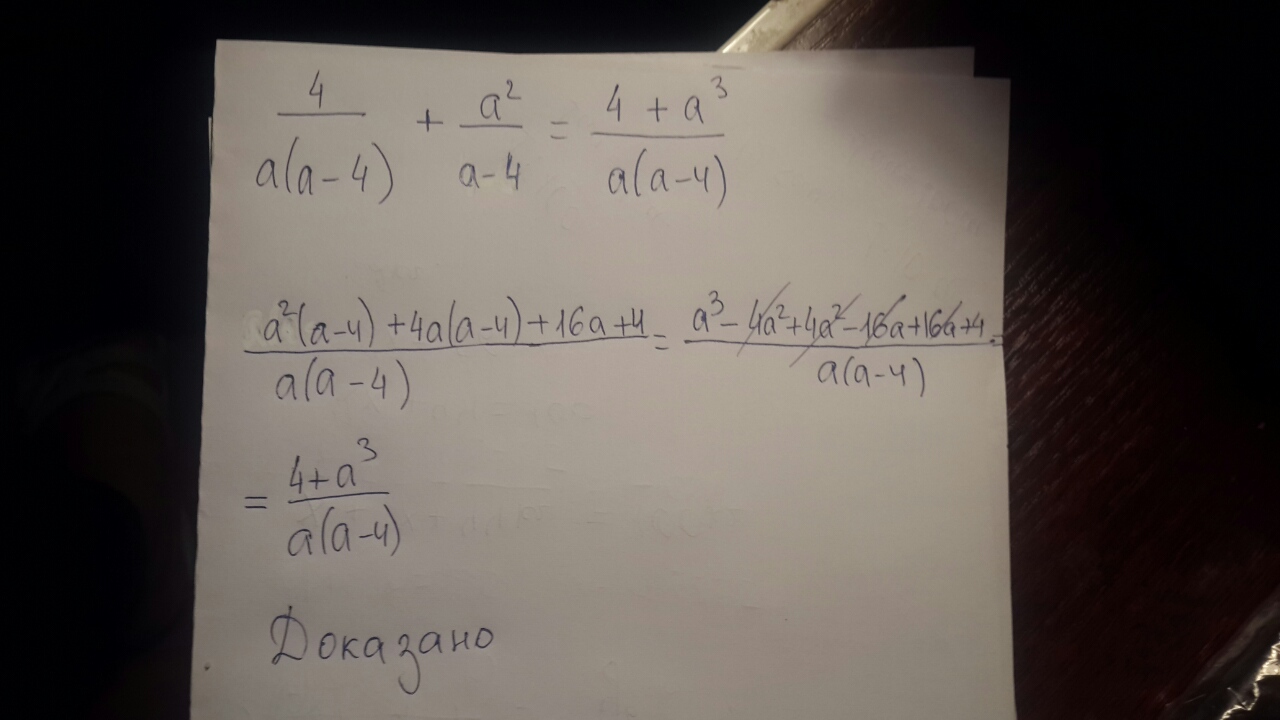 4/(a(a-4)) + a²/(a-4) = (4 + a³)/(a(a-4))
(a²(a-4) + 4a(a-4) + 16a + 4)/(a(a-4)) = (a³ - 4a² + 4a² - 16a + 16a + 4)/(a(a-4)) =
= (4 + a³)/(a(a-4))
Доказано